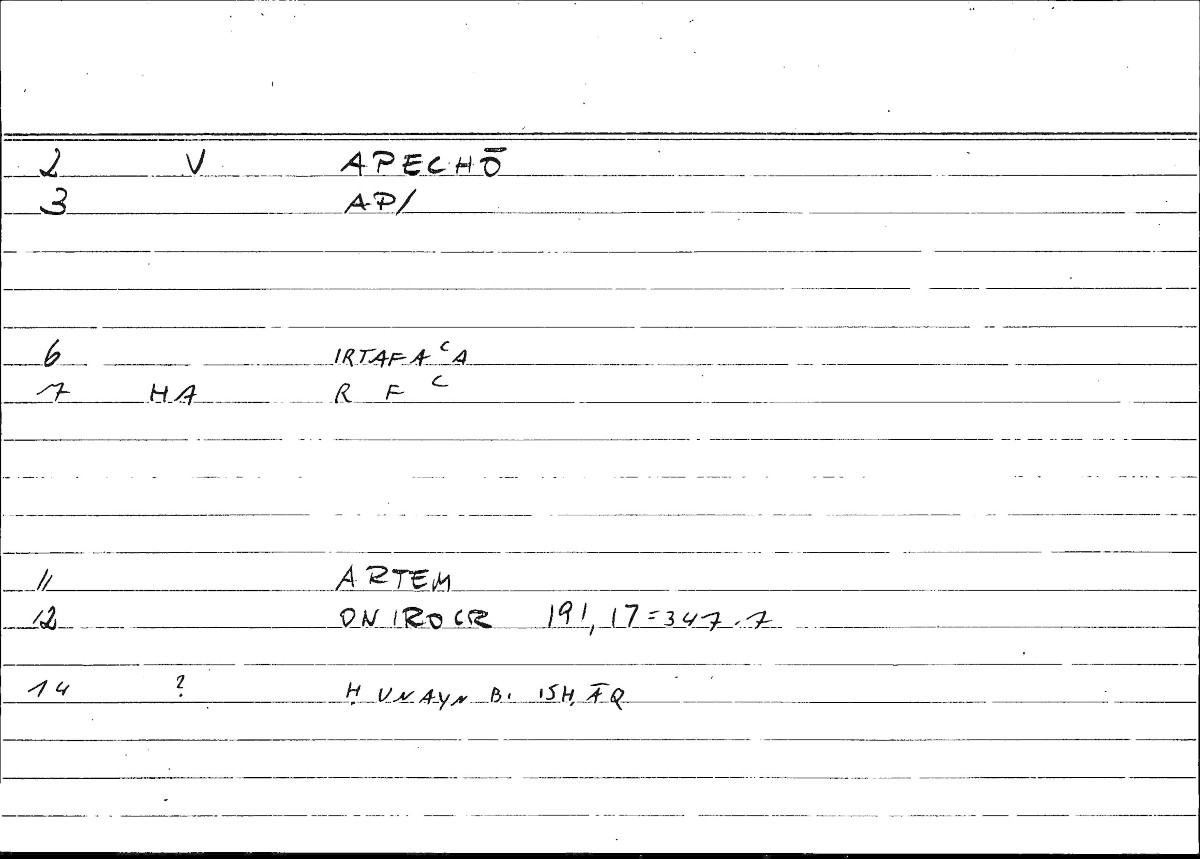 2 V APECHŌ
3 AP/
6 IRTAFAʿA
7 HA R F ʿ
11 ARTEM
12 ONIROCR 191,17=347.7
14 ? ḤUNAYN B. ISḤĀQ